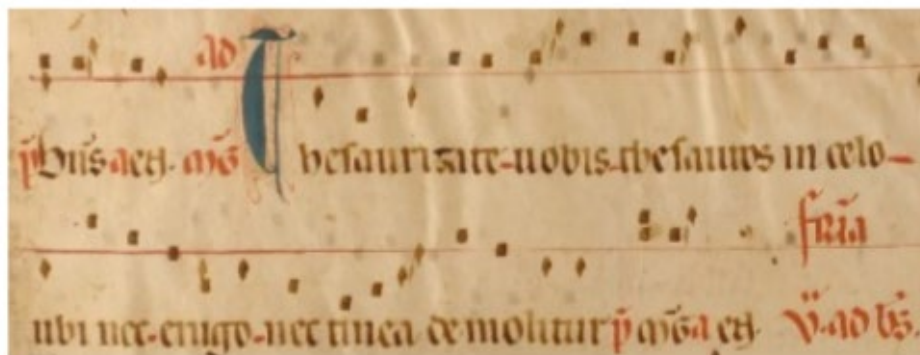 ad
p̄ bn̄s aeꝫ. m̄g Thesaurizate-uobis-thesauros in celo-
feria
ubi nec-erugo-nec tinea demolitur p̄ m̄g aeꝫ. V̈. ad bn̄s